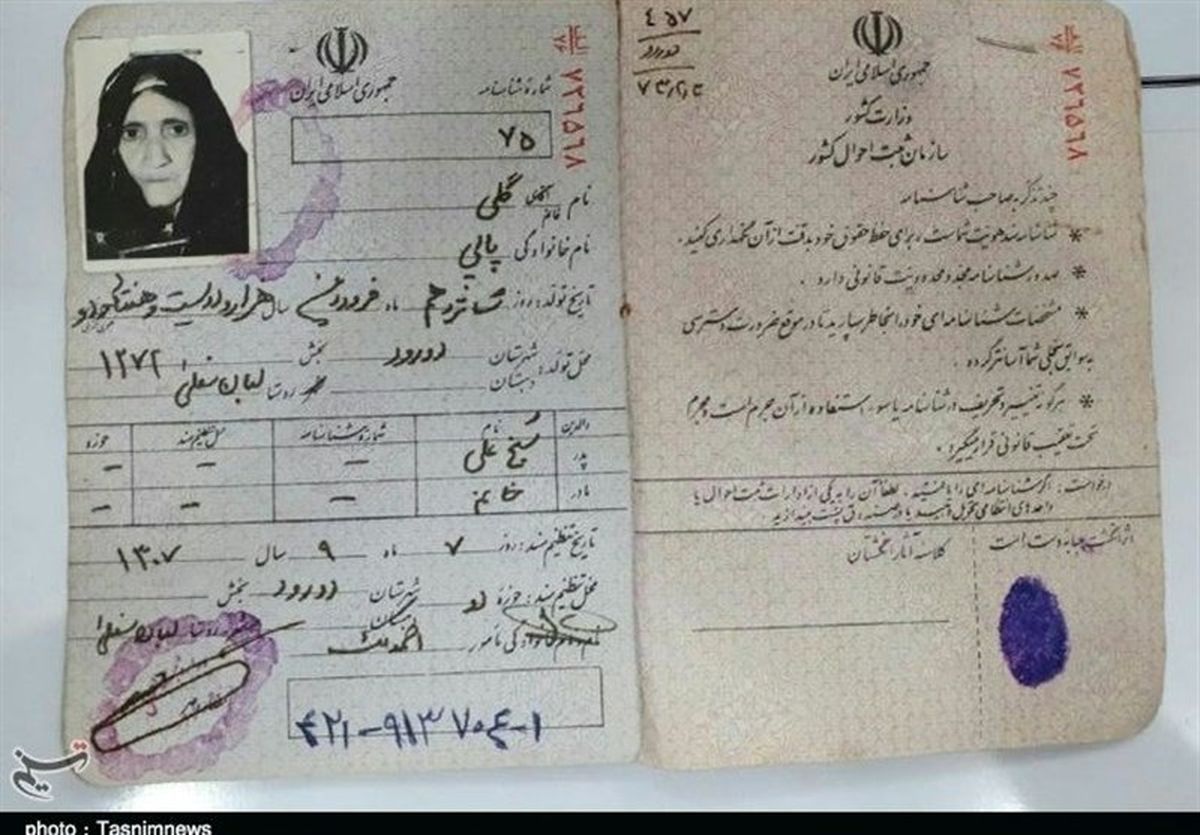 ۴۵۷
دورود
جمهوری اسلامی ایران
وزارت کشور
سازمان ثبت احوال کشور
۷۲۶۵۶۸
چند تذکر به صاحب شناسنامه
* شناسنامه سند هویت شماست، برای حفظ حقوق خود بدقت از آن نگهداری کنید.
* صدور شناسنامه مجدد محدودیت قانونی دارد.
* مشخصات شناسنامه‌ای خود را بخاطر بسپارید تا در موقع ضرورت دسترسی
به سوابق سجلی شما آسانتر گردد.
* هرگونه تغییر و تحریف در شناسنامه یا سوء استفاده از آن جرم است و مجرم
تحت تعقیب قانونی قرار میگیرد.
درخواست: اگر شناسنامه‌ای را یافتید، لطفاً آن را به یکی از ادارات ثبت احوال یا
واحدهای انتظامی تحویل دهید یا در صندوق پست بیندازید.
اثر انگشت سبابه دست است
کلاسه آثار انگشتان
جمهوری اسلامی ایران
شماره شناسنامه
۷۵
۷۲۶۵۶۸
نام آقای خانم گلی
نام خانوادگی پالی
تاریخ تولد: روز شانزدهم ماه فروردین سال هزار و دویست و هفتاد و دو
۱۲۷۲
محل تولد: شهرستان دورود بخش
دهستان روستا لبان سفلی
والدین نام شماره شناسنامه محل تنظیم سند حوزه
پدر شیخ علی – – –
مادر خانم – – –
تاریخ تنظیم سند: روز ۷ ماه ۹ سال ۱۳۰۷
محل تنظیم سند: حوزه دو شهرستان دورود بخش
روستا لبان سفلی
نام و نام خانوادگی مأمور
۴۲۱-۹۱۳۷۰۴-۱
تسنیم
photo : Tasnimnews